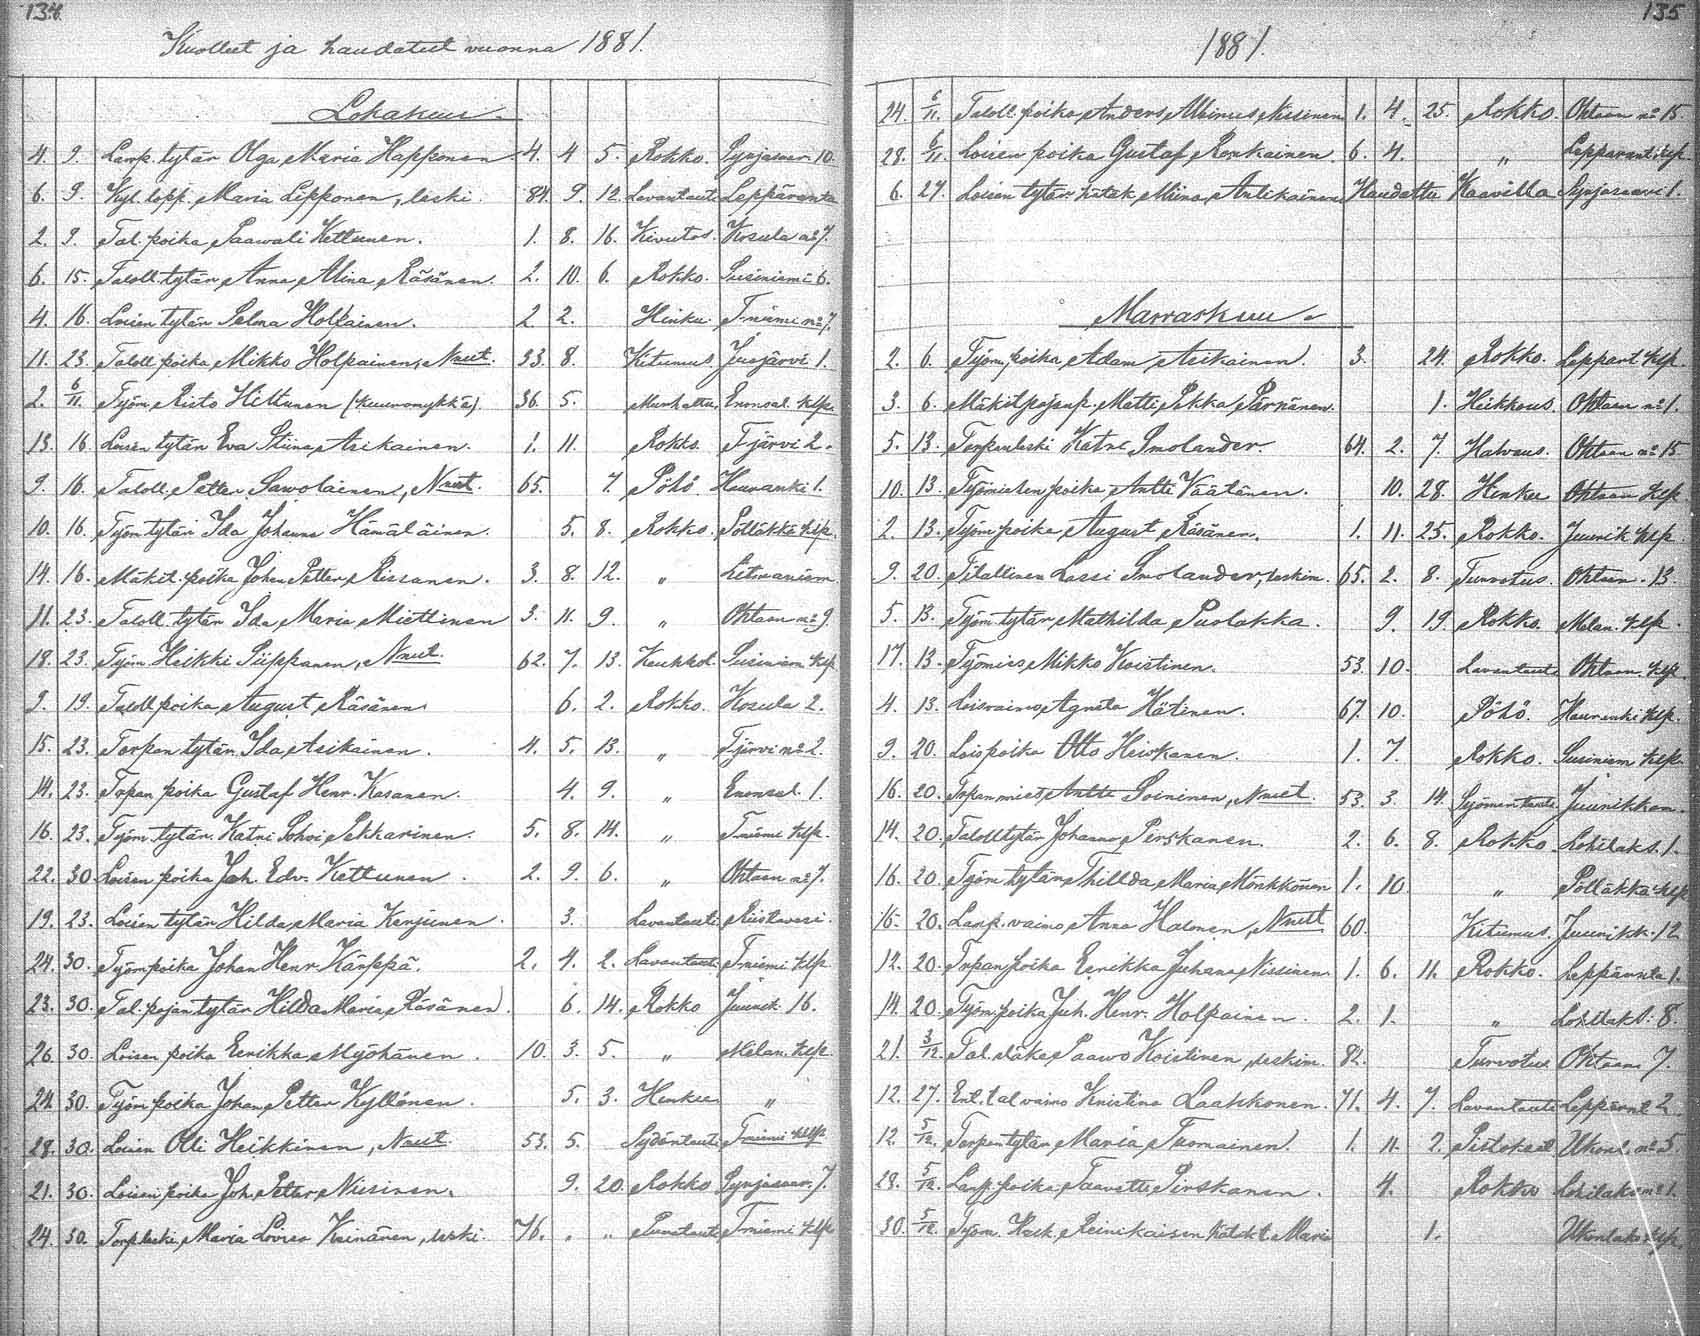 134.
Kuolleet ja haudatut vuonna 1881.
Lokakuu.
4. 9. Lamp. tytär Olga Maria Happonen 4. 4 5. Rokko. Syrjäsaar. 10.
6. 9. Kyl. lopp. Maria Lipponen, leski. 84. 9. 12. Lavantauti Leppäranta
2. 9. Tal. poika Paawali Kettunen. 1. 8. 16. Kivutos. Kosula no 7.
6. 15. Taloll. tytär Anna Alina Räsänen. 2. 10. 6. Rokko. Susiniemi 6.
4. 16. Loisen tytär Selma Holpainen. 2. 2. Hinku. T.niemi no 7.
11. 23. Taloll. poika Mikko Holpainen, Naut. 33. 8. Kitumus Juojärvi 1.
2. 6/11. Työm. Risto Hiltunen (kuuromykkä). 36. 5. Murhattu, Enonsal. klp.
13. 16 Loisen tytär Eva Stiina Asikainen. 1. 11. Rokko. T.järvi 2.
9. 16. Taloll. Petter Sawolainen, Naut. 65. 7. Pöhö. Hauranki 1.
10. 16. Työm. tytär Ida Johanna Hämäläinen. 5. 8. Rokko. Pölläkkä klp.
14. 16. Mäkit. poika Johan Petter Rissanen. 3. 8. 12. „ Litmaniem.
11. 23. Taloll. tytär Ida Maria Miettinen 3. 11. 9. „ Ohtaan no 9.
18. 23. Työm. Heikki Siippanen, Naut. 62. 7. 13. Keuhkot. Susiniem klp.
9. 19. Taloll. poika August Räsänen 6. 2. Rokko. Kosula 2.
15. 23. Torpan tytär Ida Asikainen. 4. 5. 13. „ T.järvi no 2.
14. 23. Torpan poika Gustaf Henr. Kasanen. 4. 9. „ Enonsal. 1.
16. 23. Työm. tytär Katri Sohvi Pekkarinen. 5. 8. 14. „ T.niemi klp.
22. 30 Loisen poika Joh. Edv. Kettunen. 2. 9. 6. „ Ohtaan no 7.
19. 23. Loisen tytär Hilda Maria Kerjinen. 3. Lavantauti Riistavesi.
24. 30. Työm. poika Johan Henr. Kärppä. 2. 4. 2. Lavantauti T.niemi klp
23. 30. Tal. pojan tytär Hilda Maria Räsänen. 6. 14. Rokko Juurik. 16.
26. 30. Loisen poika Eerikka Myöhänen. 10. 3. 5. „ Melan. klp.
24. 30. Työm. poika Johan Petter Kyllönen. 5. 3. Hinku. „
28. 30. Loisen Olli Heikkinen, Naut. 53. 5. Sydäntauti T.niemi klp
21. 30. Loisen poika Joh. Petter Nissinen. 9. 20. Rokko Syrjäsaar. 7.
24. 30. Torp. leski, Maria Lovisa Keinänen, leski. 76. „ „ Punatauti T.niemi klp
135
1881.
24. 6/11. Taloll. poika Anders Albinus Nissinen 1. 4. 25. Rokko. Ohtaan no 15.
28. 6/11. Loisen poika Gustaf Ronkainen. 6. 4. „ Lepparant. klp.
6. 27. Loisen tytär hätäk. Miina Antikainen Haudattu Kaavilla Syrjäsaari 1.
Marraskuu.
2. 6. Työm. poika Adam Asikainen. 3. 24. Rokko. Leppart. klp.
3. 6. Mäkit. pojanp. Matti Pekka Pärnänen. 1. Heikkous. Ohtaan no 1.
5. 13. Torpanleski Katri Smolander. 64. 2. 7. Halvaus. Ohtaan no 15.
10. 13. Työmiehen poika Antti Väätänen. 10. 28. Hinku Ohtaan klp.
2. 13. Työm. poika August Räsänen. 1. 11. 25. Rokko. Juurik klp.
9. 20. Tilallinen Lassi Smolander, leskim. 65. 2. 8. Turvotus. Ohtaan. 13.
5. 13. Työm. tytär Mathilda Puolakka. 9. 19. Rokko. Melan. klp.
17. 13. Työmies Mikko Koistinen. 53. 10. Lavantauti Ohtaan. klp.
4. 13. Loisvaimo Agneta Hätinen. 67. 10. Pöhö. Hauranki klp.
9. 20. Loispoika Otto Heiskanen. 1. 7. Rokko. Susiniem klp.
16. 20. Torpanmies Antti Soininen, Naut. 53. 3. 14. Juurikkam.
14. 20. Taloll. tytär Johanna Pirskanen. 2. 6. 8. Rokko. Lohilaks. 1.
16. 20. Työm. tytär Thillda Maria Mönkkönen 1. 10 „ Pölläkkä klp
15. 20. Lamp. vaimo Anna Halonen, Naut 60. Kitumus. Juurikk. 12
12. 20. Torpan poika Eerikka Juhana Nissinen. 1. 6. 11. Rokko. Leppärnta 1.
14. 20. Työm. poika Juh. Henr. Holpainen. 2. 1. „ Lohilaks. 8.
21. 3/12. Tal. Paawo Koistinen, leskim. 82. Turvotus Ohtaan. 7.
12. 27. Ent. tal. vaimo Kristina Laakkonen. 71. 4. 7. Lavantauti Leppärnt 2.
12. 5/12. Torpan tytär Maria Tuomainen. 1. 11. 2. Pistokset Ukonl. no 5.
28. 5/12. Lamp. poika Taavetti Pirskanen. 4. Rokko Lohilaks no 1.
30. 5/12. Työm. Heik. Reinikaisen hätäk. t. Maria 1. Ukonlaks klp.